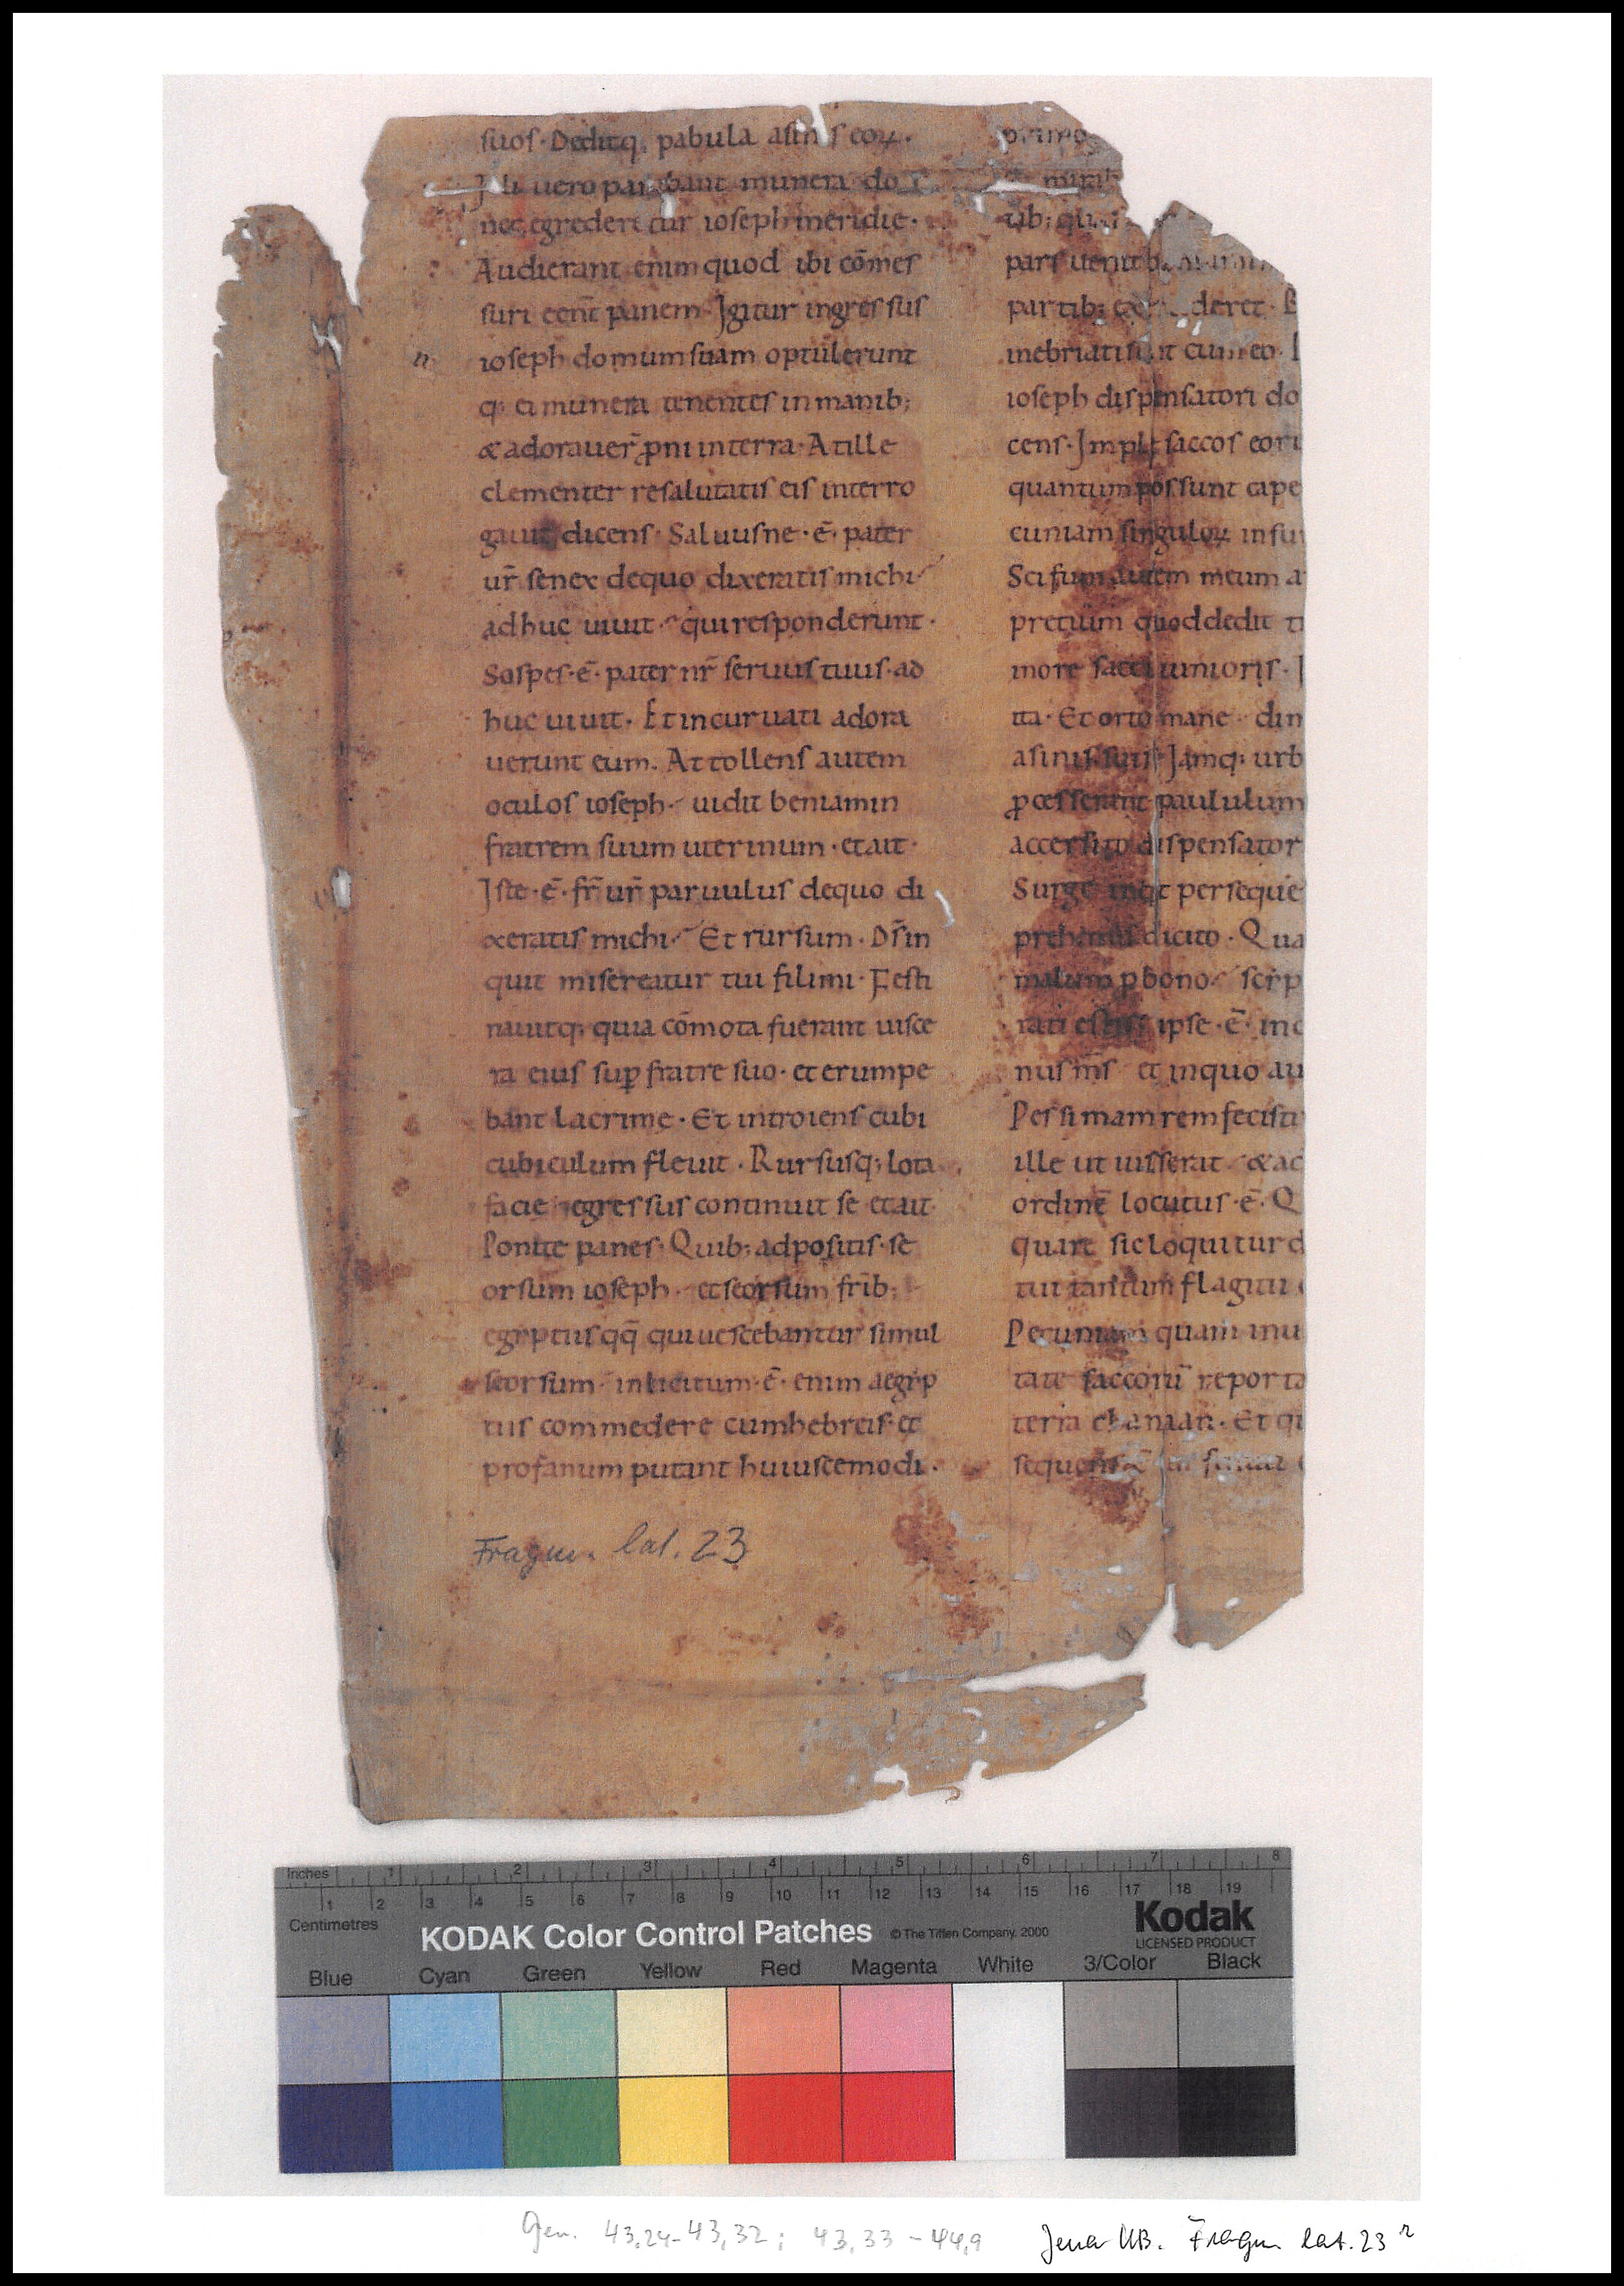 suos. Deditq; pabula asin s eoꝝ.
uero parabant munera
nec egrederetur ioseph meridie.
Audierant enim quod ibi cōmes
suri eēnt panem. Igitur ingressus
ioseph domum suam optulerunt
q; ei munera tenentes in manib;
& adorauer̄ ꝓni in terra. At ille
clementer resalutatis eis interro
gauit dicens. Saluusne .ē. pater
ur̄ senex de quo dixeratis michi
adhuc uiuit. qui responderunt.
Sospes .ē. pater nr̄ seruus tuus. ad
huc uiuit. Et incuruati adora
uerunt eum. Attollens autem
oculos ioseph. uidit beniamin
fratrem suum uterinum. et ait.
Iste .ē. fr̄ ur̄ paruulus de quo di
xeratis michi. Et rursum. Ds̄ in
quit misereatur tui fili mi. Festi
nauitq; quia cōmota fuerant uisce
ra eius suꝑ fratre suo. et erumpe
bant lacrime. Et introiens cubi
cubiculum fleuit. Rursusq; lota
facie egressus continuit se et ait.
Ponite panes. Quib; adpositis. se
orsum ioseph. et seorsum frīb;
egyptiis qq̄ qui uescebantur simul
seorsum. inlicitum .ē. enim aegyp
tiis commedere cum hebreis. et
profanum putant huiuscemodi.
primo
mirab
tib; qu
pars uenit b
partib; ex deret. B
inebriati sunt cum eo. I
ioseph dispensatori do
cens. Imple saccos eoru
quantum possunt cape
cuniam singuloꝝ in su
Scifum autem meum a
pretium quod dedit t
more sacci iunioris. I
ita. Et orto mane dim
asinis suis. Iamq; urb
ꝓcesserant paululum
accersito dispensator
Surge inqt perseque
prehensis dicito. Qua
malum ꝓ bono. scyp
rati estis ipse .ē. in
nus ms̄ et in quo au
Pessimam rem fecisti
ille ut iusserat. & ad
ordinē locutus .ē. Q
quare sic loquitur d
tui tantum flagitii
Pecuniam quam inu
tate saccorū reporta
terra chanaan. Et q
sequens .ē.
Fragm. lat. 23
Inches 1 2 3 4 5 6 7 8
1 2 3 4 5 6 7 8 9 10 11 12 13 14 15 16 17 18 19
Centimetres
KODAK Color Control Patches © The Tiffen Company, 2000
Kodak
LICENSED PRODUCT
Blue Cyan Green Yellow Red Magenta White 3/Color Black
Gen. 43,24-43,32; 43,33-44,9 Jena UB. Fragm. lat. 23 r